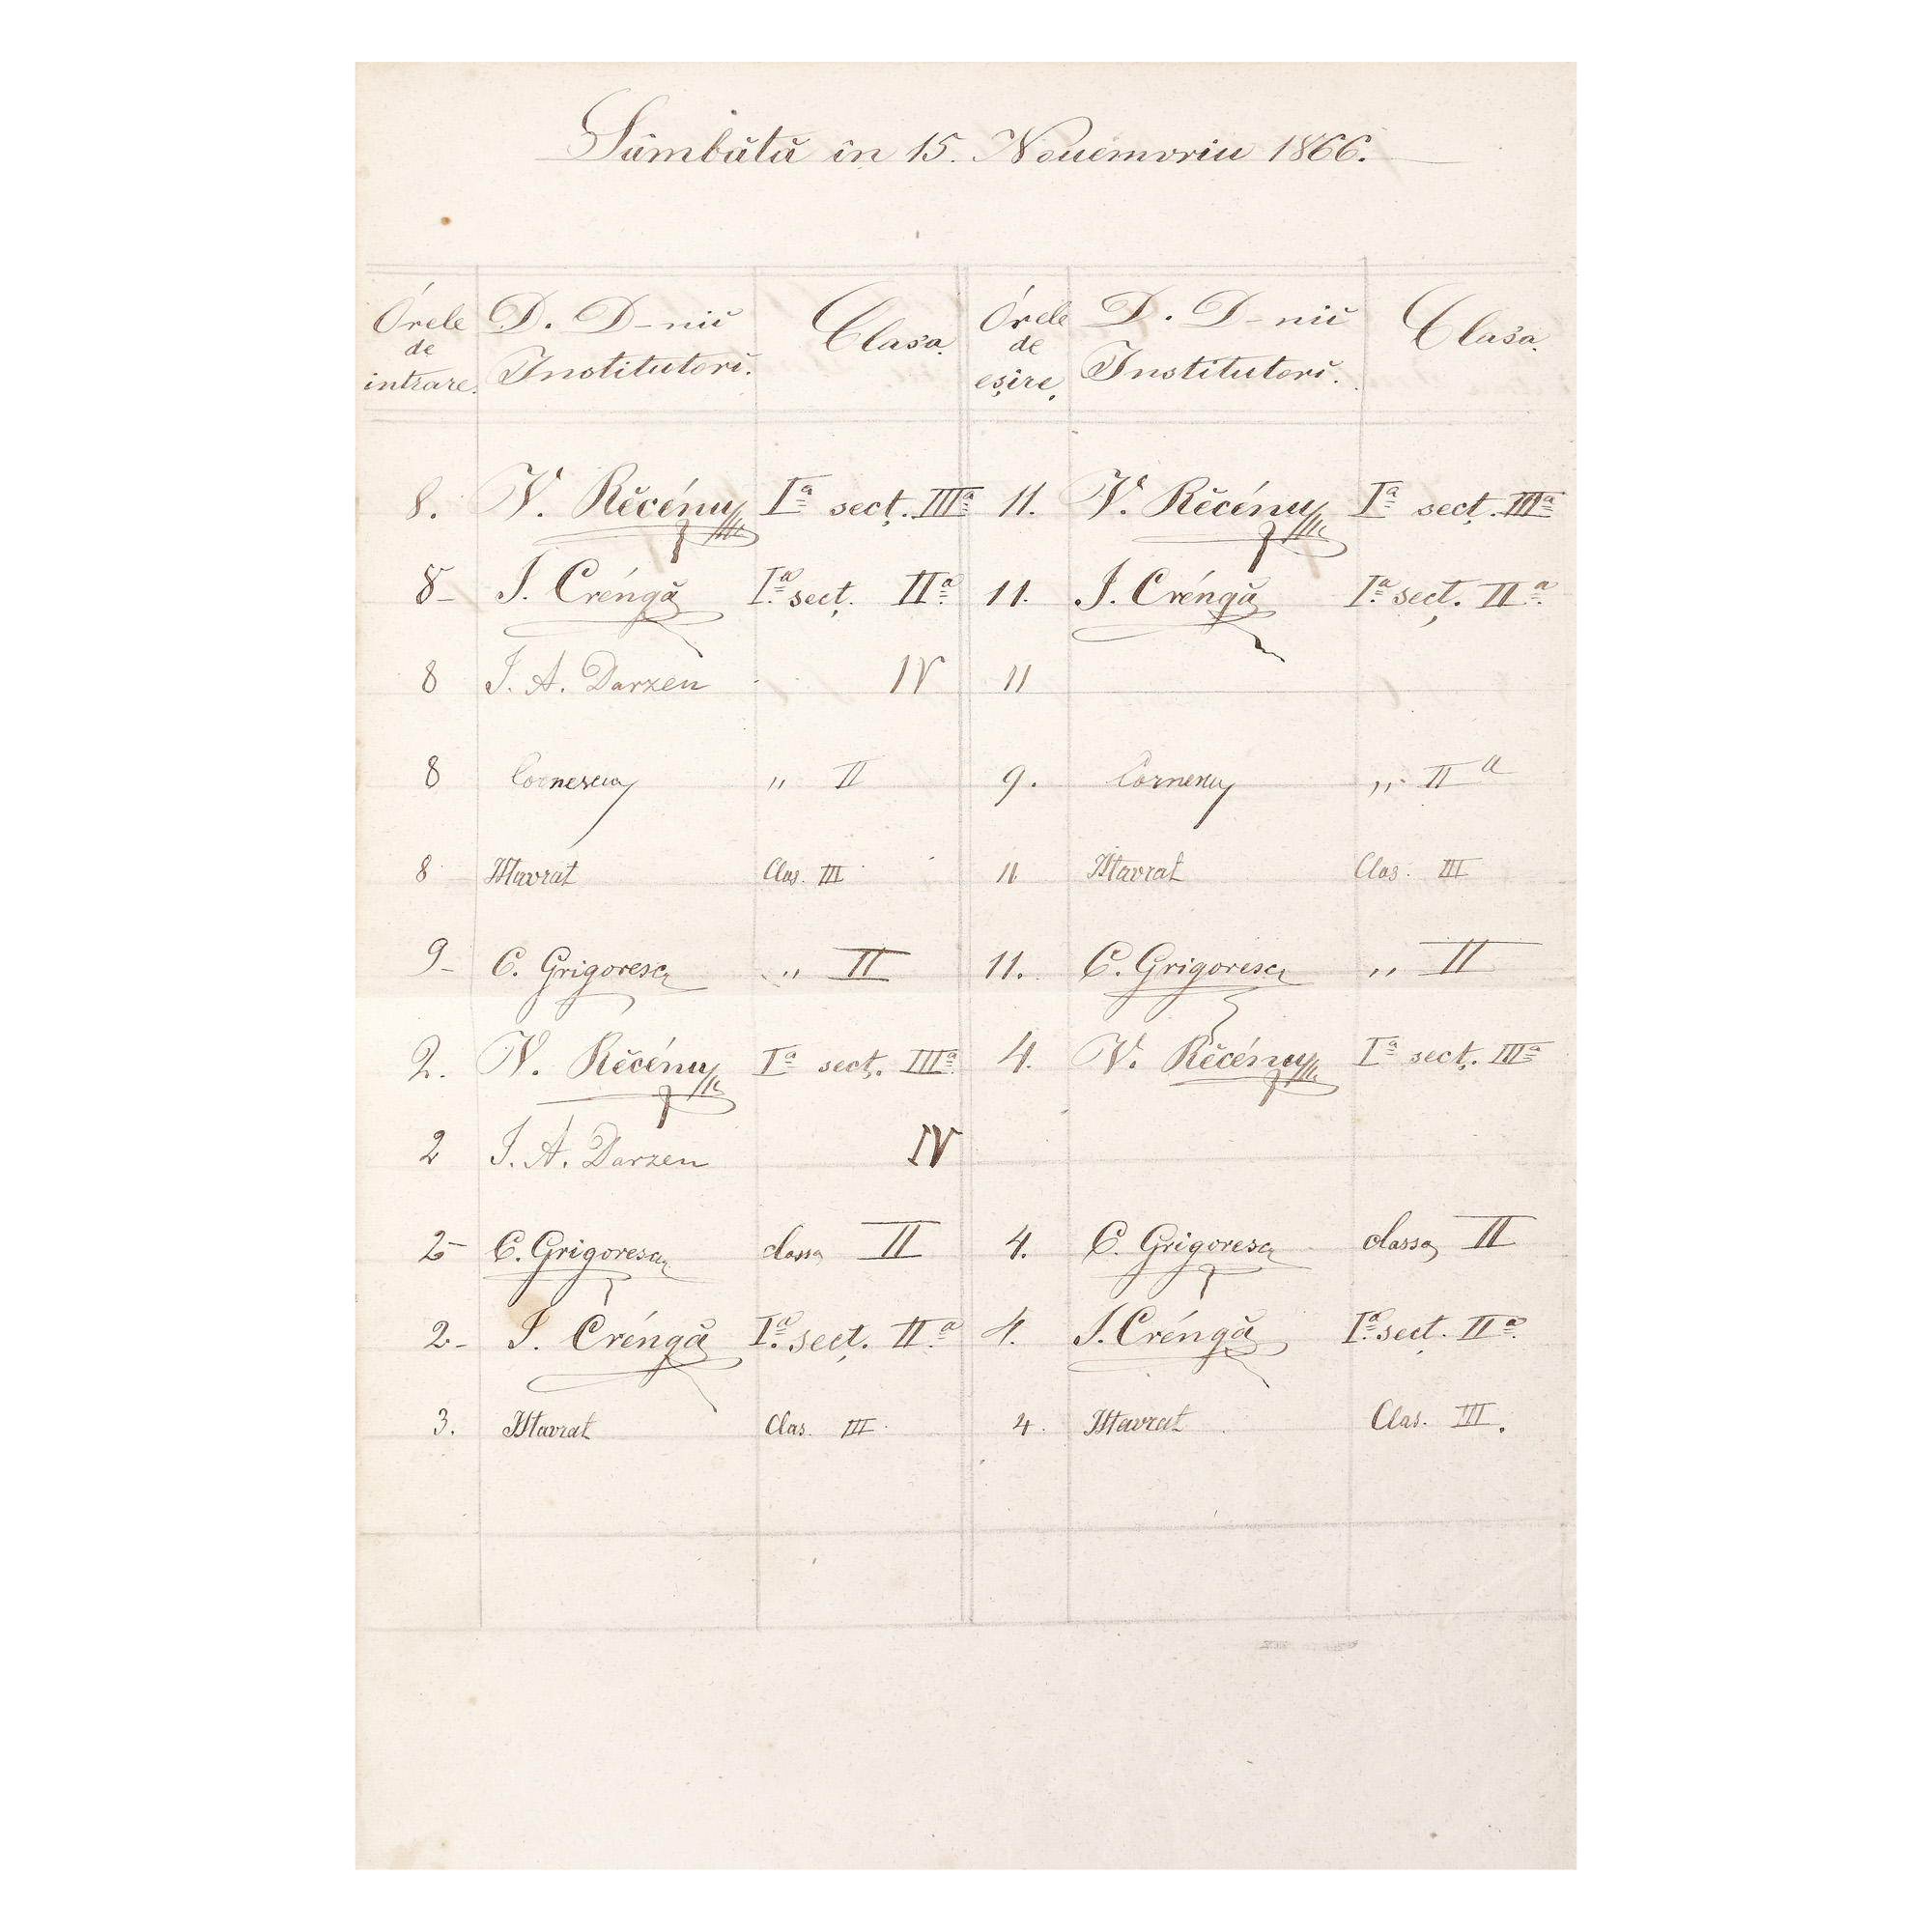 Sâmbătă în 15. Nouemvriu 1866.
Órele de intrare. D. D-niĭ Institutorĭ. Clasa. Órele de eşire. D. D-niĭ Institutorĭ. Clasa.
8. V. Rĕcénu Iª secţ. IIIª 11. V. Rĕcénu Iª secţ. IIIª
8- I. Créngă Iª secţ. IIª 11. I. Créngă Iª secţ. IIª
8 I. A. Darzen IV 11
8 Cornescu „ II 9. Cornescu „ IIª
8 IStavrat Clas. III 11 IStavrat Clas. III
9- C. Grigorescu „ II 11. C. Grigorescu „ II
2. V. Rĕcénu Iª secţ. IIIª 4. V. Rĕcénu Iª secţ. IIIª
2 I. A. Darzen IV
2- C. Grigorescu classa II 4. C. Grigorescu classa II
2- I. Créngă Iª secţ. IIª 4. I. Créngă Iª secţ. IIª
3. IStavrat Clas. III 4. IStavrat Clas. III.